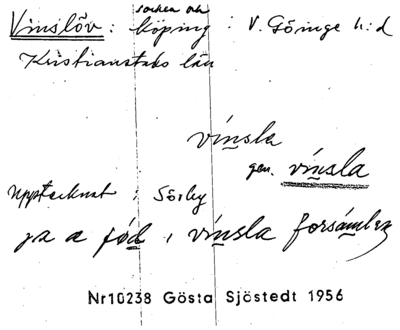 socken och
Vinslöv: köping: V. Göinge h:d
Kristianstads län
vinsla
gen. vinsla
Upptecknat i Sörby
ja a föd i vinsla forsamlen
Nr10238 Gösta Sjöstedt 1956